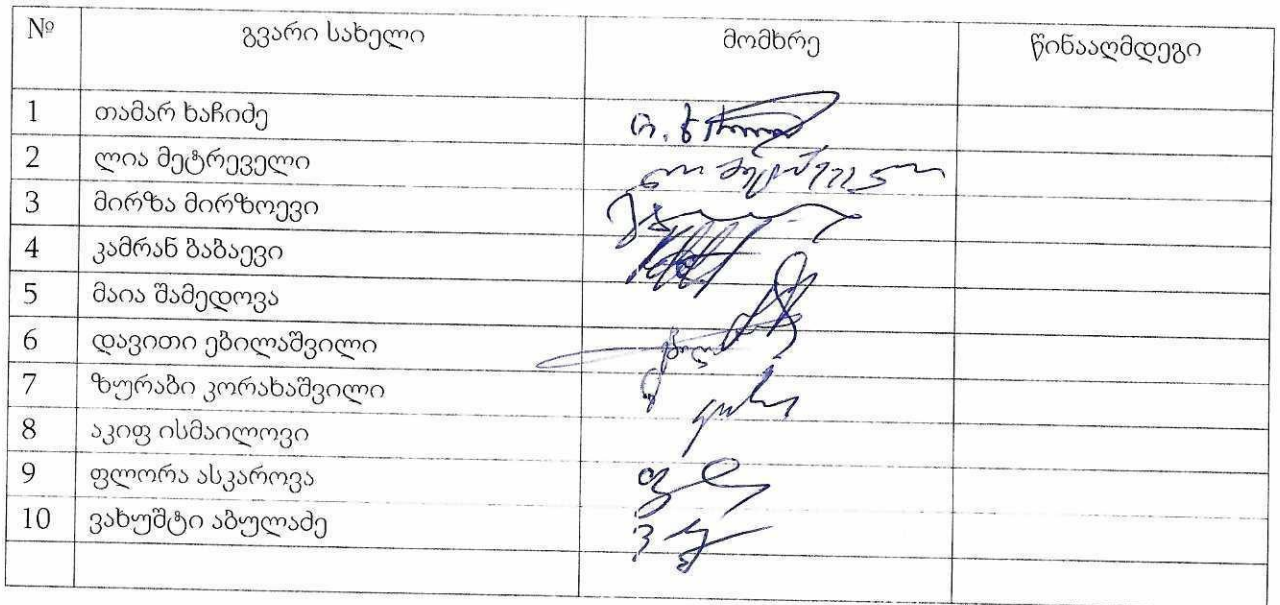 № გვარი სახელი მომხრე წინააღმდეგი
1 თამარ ხაჩიძე
2 ლია მეტრეველი
3 მირზა მირზოევი
4 კამრან ბაბაევი
5 მაია შამედოვა
6 დავითი ებილაშვილი
7 ზურაბი კორახაშვილი
8 აკიფ ისმაილოვი
9 ფლორა ასკაროვა
10 ვახუშტი აბულაძე